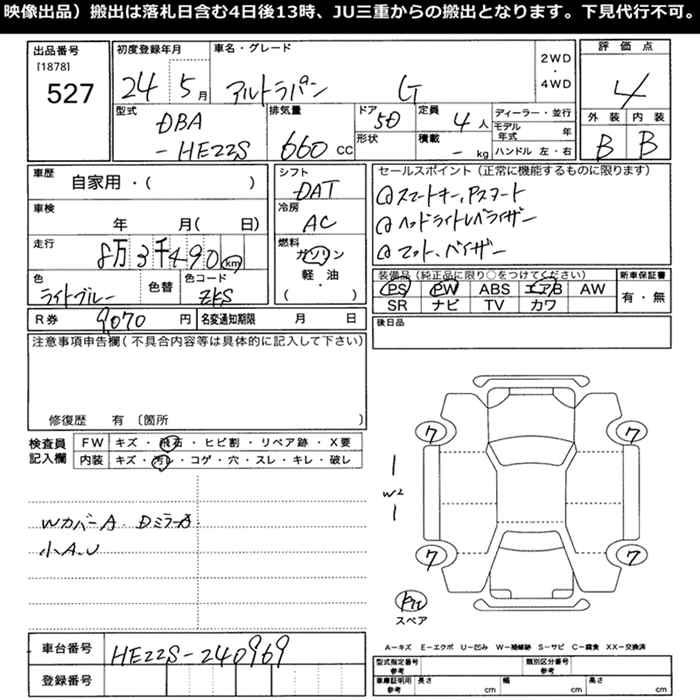 映像出品）搬出は落札日含む4日後13時、JU三重からの搬出となります。下見代行不可。
出品番号
[1878]
527
初度登録年月
24 5月
車名・グレード
アルトラパン G
2WD
・
4WD
評価点
4
外装 内装
B B
型式
DBA
-HE22S
排気量
660 CC
ドア
5D
形状
定員
4人
積載
- kg
ディーラー・並行
モデル年式 年
ハンドル 左・右
車歴
自家用・( )
車検
年 月( 日)
走行
8万3千490km
色
ライトブルー
色替
色コード
ZKS
シフト
DAT
冷房
AC
燃料
ガソリン
軽・油
( )
セールスポイント（正常に機能するものに限ります）
①スマートキー,Pスタート
①ヘッドライトレベライザー
①マット、バイザー
装備品（純正品に限り○をつけてください）
PS PW ABS エアB AW
SR ナビ TV カワ
新車保証書
有・無
R券 9070円
名変通知期限 月 日
後日品
注意事項申告欄(不具合内容等は具体的に記入して下さい)
修復歴 有〔箇所 〕
検査員
記入欄
FW キズ・飛石・ヒビ割・リペア跡・X要
内装 キズ・汚レ・コゲ・穴・スレ・キレ・破レ
WカバーA. DミラーA
小A.U
7 7
1
W2
1
7 7
スペア
A－キズ E－エクボ U－凹み W－補修跡 S－サビ C－腐食 XX－交換済
車台番号 HE22S-240969
登録番号
型式指定番号
参考
類別区分番号
参考
車庫証明用
参考
長さ cm 幅 cm 高さ cm